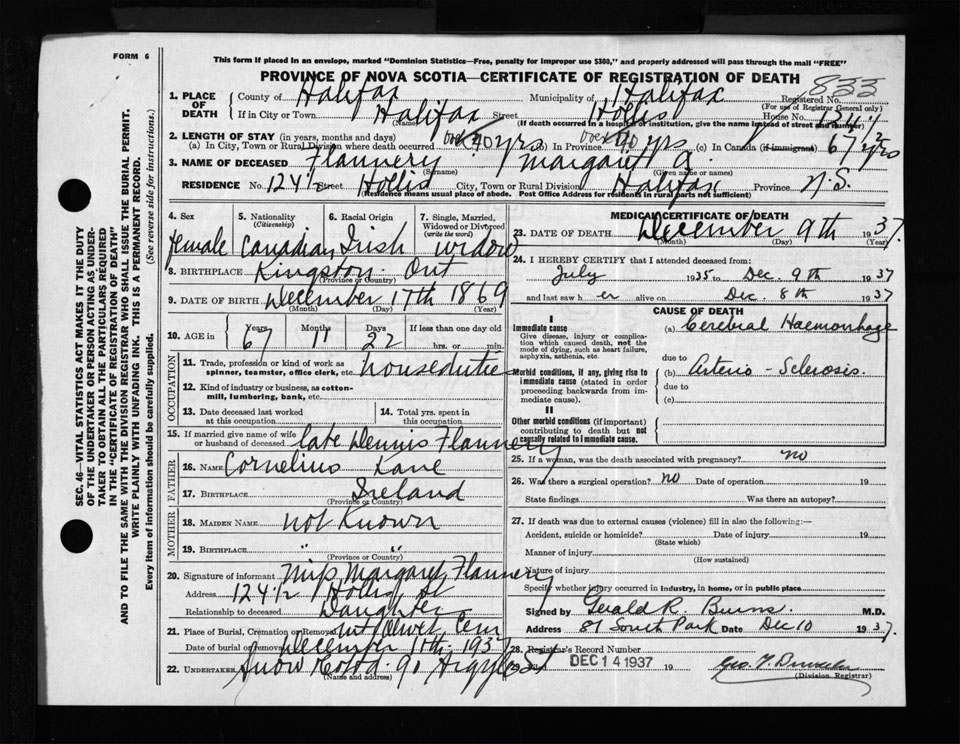 FORM 6
This form if placed in an envelope, marked "Dominion Statistics—Free, penalty for improper use $300," and properly addressed will pass through the mail "FREE"
PROVINCE OF NOVA SCOTIA—CERTIFICATE OF REGISTRATION OF DEATH
833
1. PLACE OF DEATH
County of Halifax Municipality of Halifax Registered No.
(For use of Registrar General only)
If in City or Town Halifax Street Hollis House No. 124½
(Name) (If death occurred in a hospital or institution, give the name instead of street and number)
2. LENGTH OF STAY (in years, months and days)
(a) In City, Town or Rural Division where death occurred over 40 yrs (b) in Province over 40 yrs (c) in Canada (if immigrant) 67 yrs
3. NAME OF DECEASED Flannery Margaret A.
(Surname) (Given name or names)
RESIDENCE No. 124½ Street Hollis City, Town or Rural Division Halifax Province N.S.
(Residence means usual place of abode. Post Office Address for residents in rural parts not sufficient)
4. Sex female
5. Nationality (Citizenship) Canadian
6. Racial Origin Irish
7. Single, Married, Widowed or Divorced (write the word) widow
8. BIRTHPLACE Kingston Ont
(Province or Country)
9. DATE OF BIRTH December 17th 1869
(Month) (Day) (Year)
10. AGE in Years 67 Months 11 Days 22 If less than one day old hrs. or min.
OCCUPATION
11. Trade, profession or kind of work as spinner, teamster, office clerk, etc. houseduties
12. Kind of industry or business, as cotton-mill, lumbering, bank, etc.
13. Date deceased last worked at this occupation
14. Total yrs. spent in this occupation
15. If married give name of wife or husband of deceased late Dennis Flannery
FATHER
16. NAME Cornelius Lane
17. BIRTHPLACE Ireland
(Province or Country)
MOTHER
18. MAIDEN NAME not Known
19. BIRTHPLACE " "
(Province or Country)
20. Signature of informant Miss Margaret Flannery
Address 124½ Hollis St
Relationship to deceased Daughter
21. Place of Burial, Cremation or Removal Mt Olivet Cem
Date of burial or removal December 11th 1937
22. UNDERTAKER Snow & Co Ltd. 90 Argyle St
(Name and address)
MEDICAL CERTIFICATE OF DEATH
23. DATE OF DEATH December 9th 1937.
(Month) (Day) (Year)
24. I HEREBY CERTIFY that I attended deceased from:
July 1935 to Dec. 9th 1937
and last saw h er alive on Dec. 8th 1937
CAUSE OF DEATH
I
Immediate cause
Give disease, injury or complication which caused death, not the mode of dying, such as heart failure, asphyxia, asthenia, etc.
(a) Cerebral Haemorrhage
due to
Morbid conditions, if any, giving rise to immediate cause (stated in order proceeding backwards from immediate cause).
(b) Arterio-Sclerosis.
due to
(c)
II
Other morbid conditions (if important) contributing to death but not causally related to immediate cause.
25. If a woman, was the death associated with pregnancy? no
26. Was there a surgical operation? no Date of operation 19
State findings Was there an autopsy?
27. If death was due to external causes (violence) fill in also the following:—
Accident, suicide or homicide? Date of injury 19
(State which)
Manner of injury
(How sustained)
Nature of injury
Specify whether injury occurred in industry, in home, or in public place
Signed by Gerald R. Burns. M.D.
Address 87 South Park Date Dec 10 1937.
28. Registrar's Record Number
29. Filed DEC 14 1937 19
(Division Registrar)
SEC. 46—VITAL STATISTICS ACT MAKES IT THE DUTY
OF THE UNDERTAKER OR PERSON ACTING AS UNDER-
TAKER TO OBTAIN ALL THE PARTICULARS REQUIRED
IN THE "CERTIFICATE OF REGISTRATION OF DEATH"
AND TO FILE THE SAME WITH THE DIVISION REGISTRAR WHO SHALL ISSUE THE BURIAL PERMIT.
WRITE PLAINLY WITH UNFADING INK. THIS IS A PERMANENT RECORD.
Every item of information should be carefully supplied. (See reverse side for instructions.)